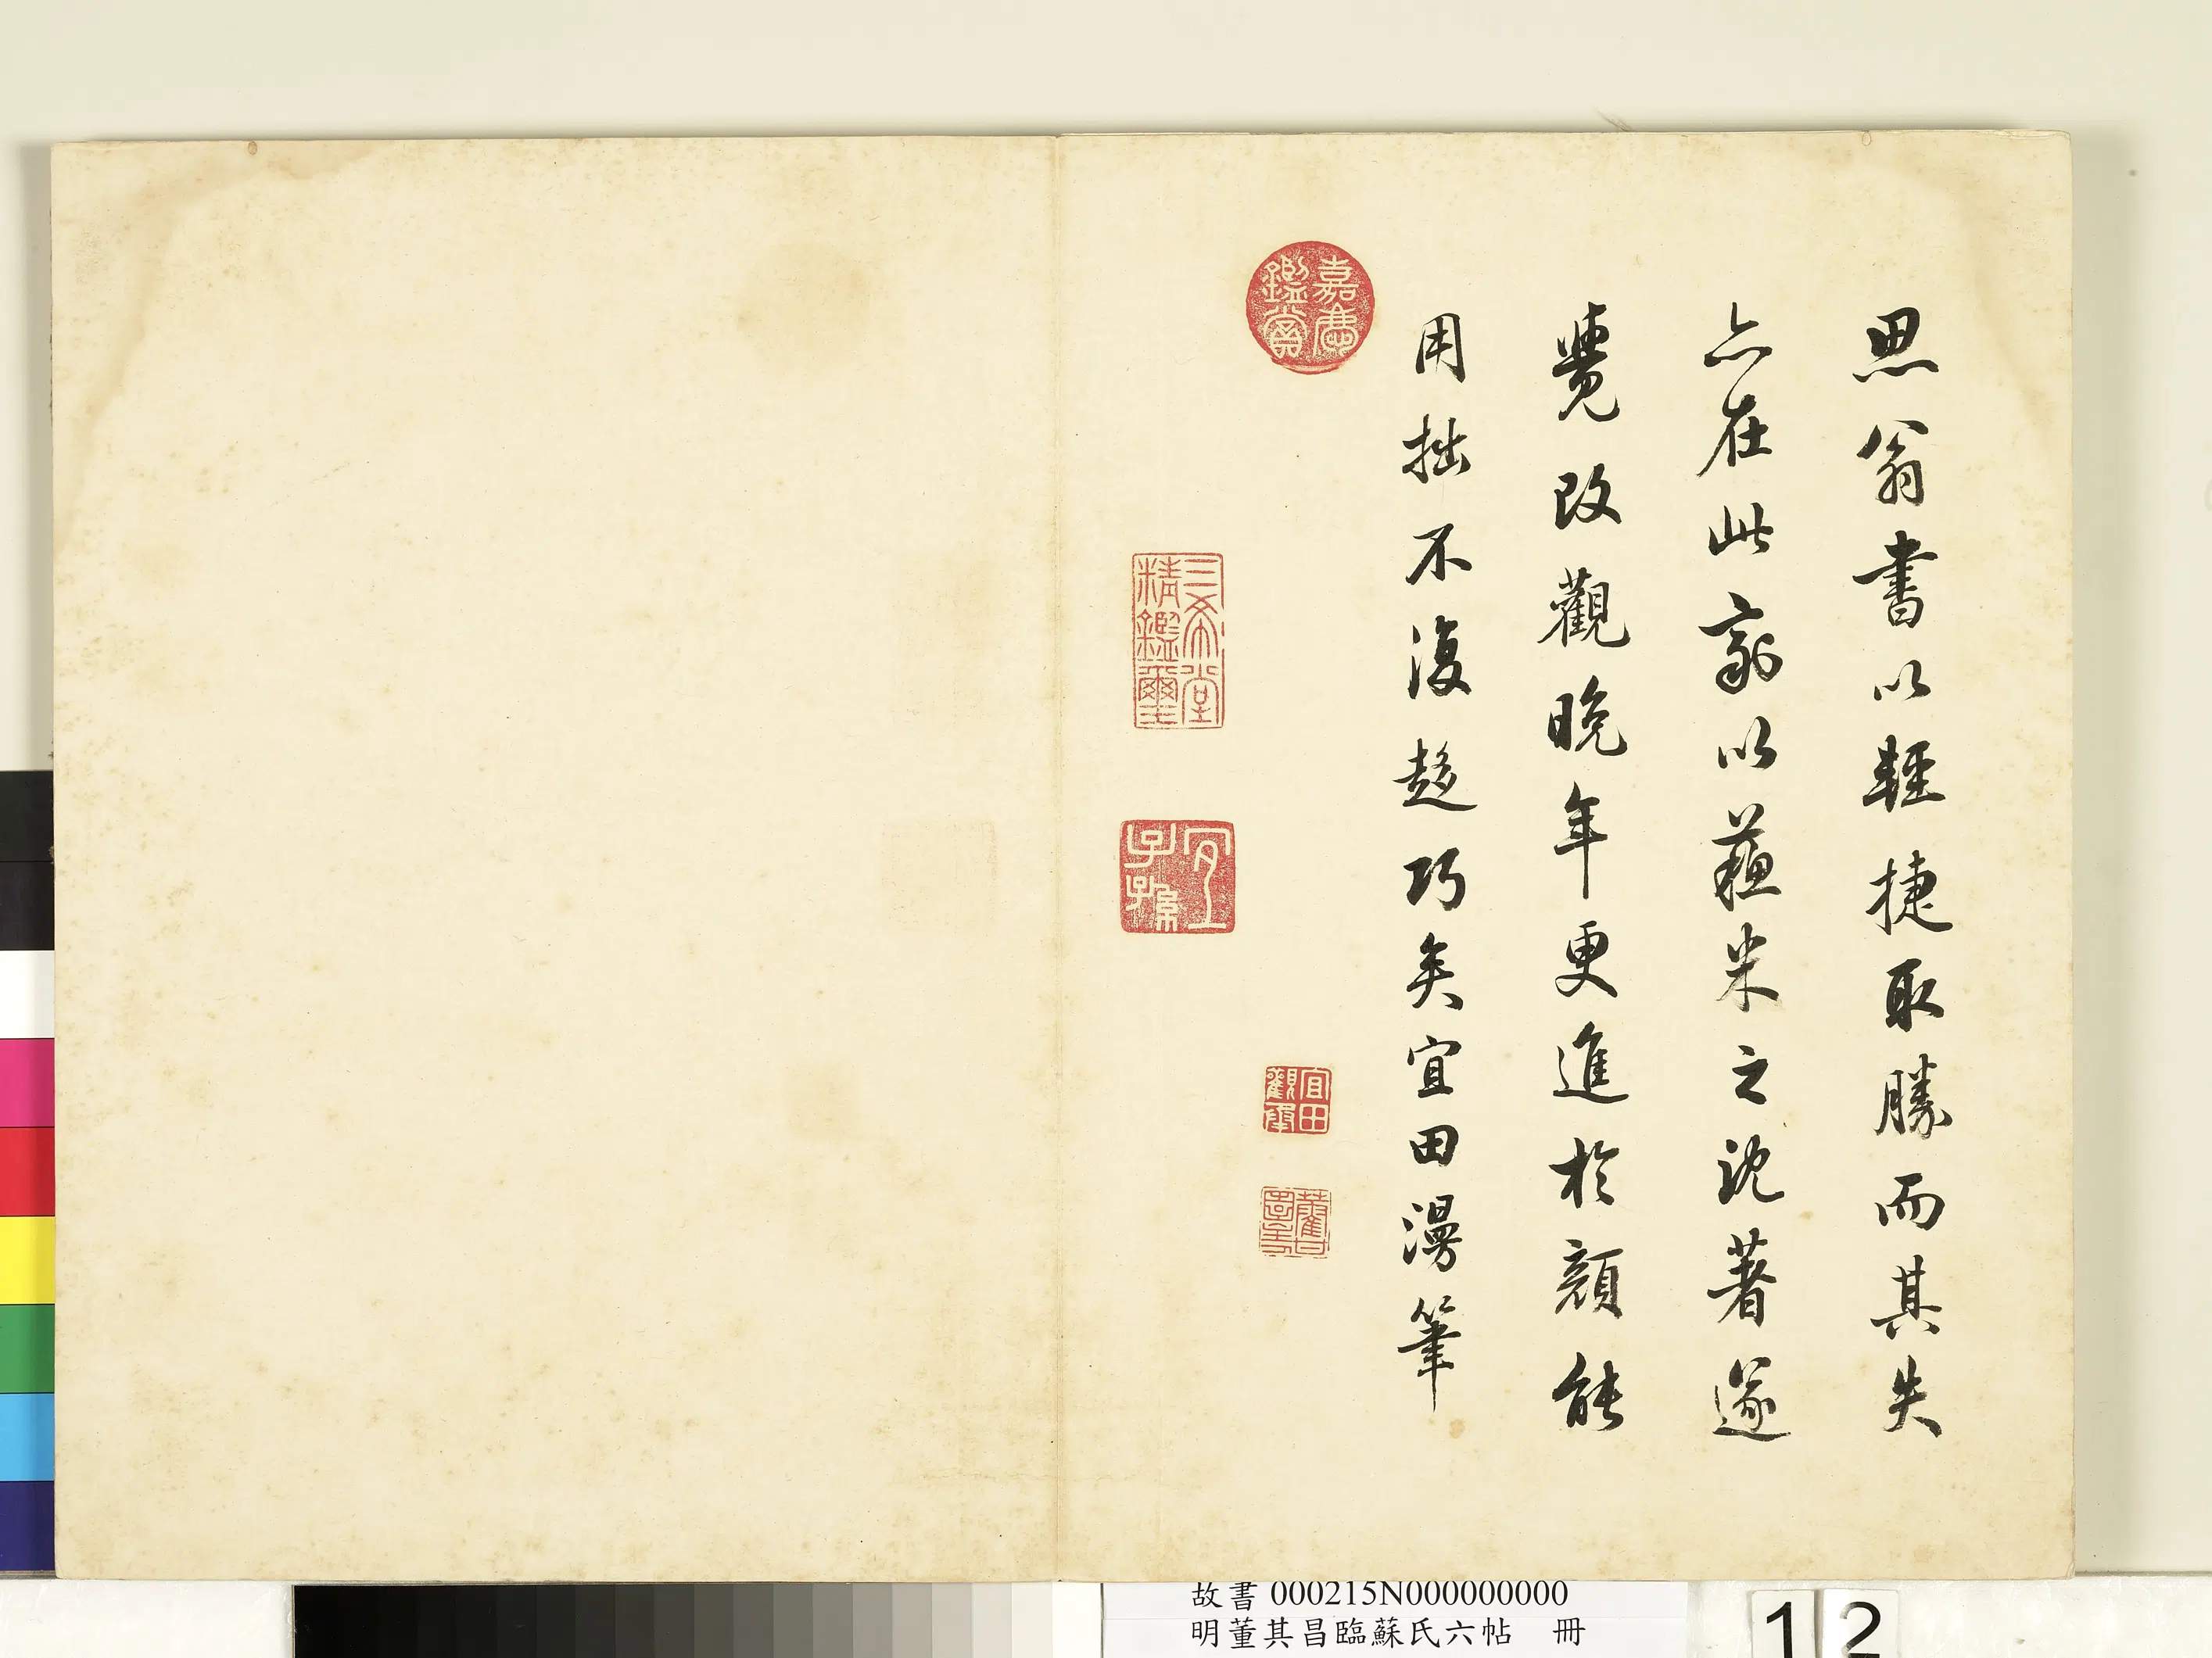 思翁書以輕捷取勝而其失
亦在此豪以蘇米之沈著遂
覺改觀晚年更進於顏能
用拙不復趨巧矣宜田漫筆
嘉慶鑑賞
三希堂精鑑璽
宜子孫
宜田
故書 000215N000000000
明董其昌臨蘇氏六帖 冊
12